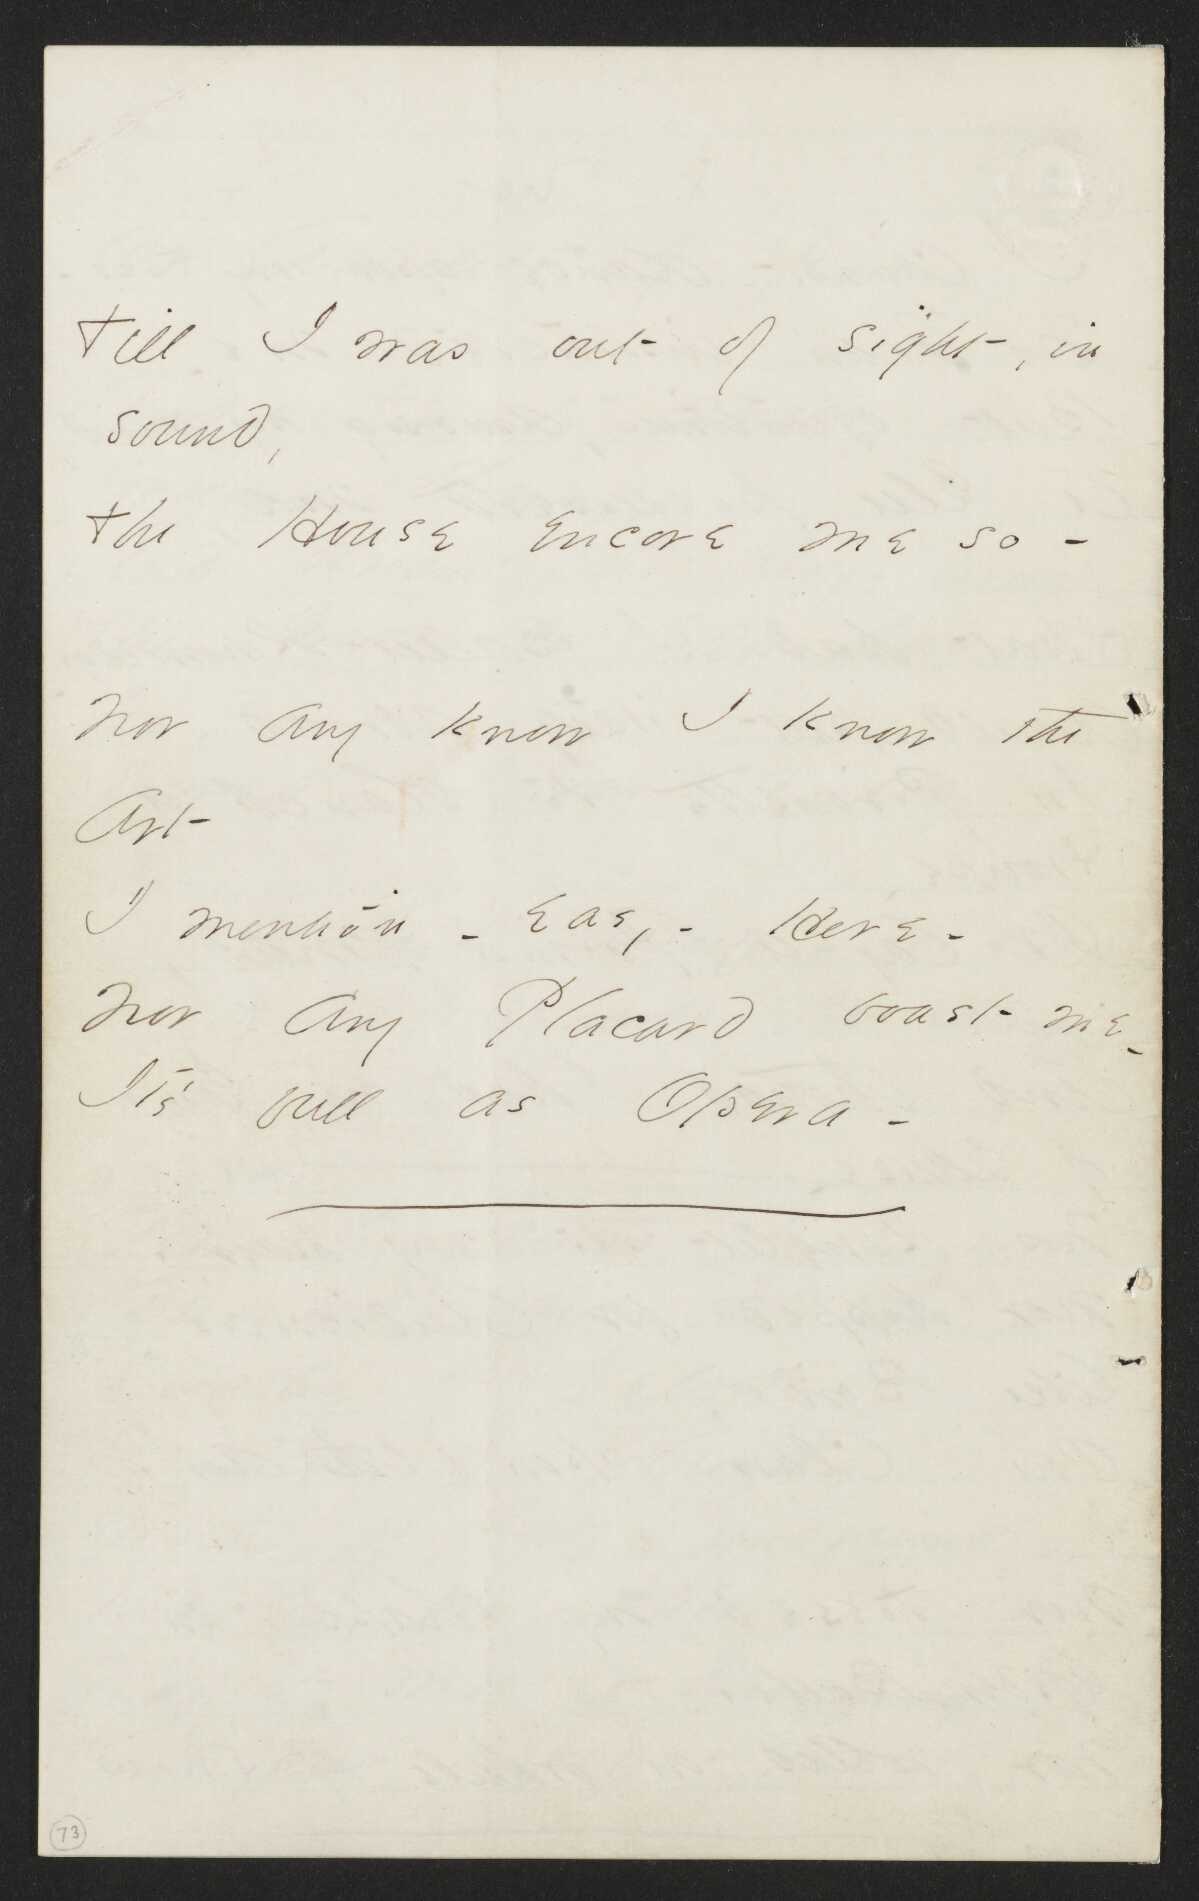 till I was out of sight, in
sound,
the House encore me so -
Nor any know I know the
Art
I mention - easy - Here -
Nor any Placard boast me -
It's full as Opera -
73